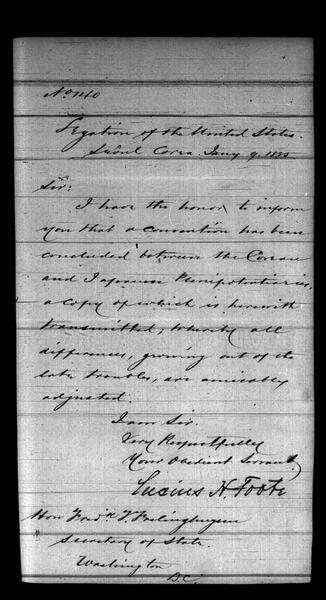 No 140
Legation of the United States.
Seoul Corea. Jany 9. 1885
Sir:
I have the honor to inform
you that a convention has been
concluded between the Corean
and Japanese Plenipotentiaries,
a copy of which is herewith
transmitted, whereby all
differences, growing out of the
late troubles, are amicably
adjusted.
I am Sir.
Very Respectfully
Your Obedient Servant,
Lucius H. Foote
Hon Fredk T. Frelinghuysen
Secretary of State.
Washington
D.C.